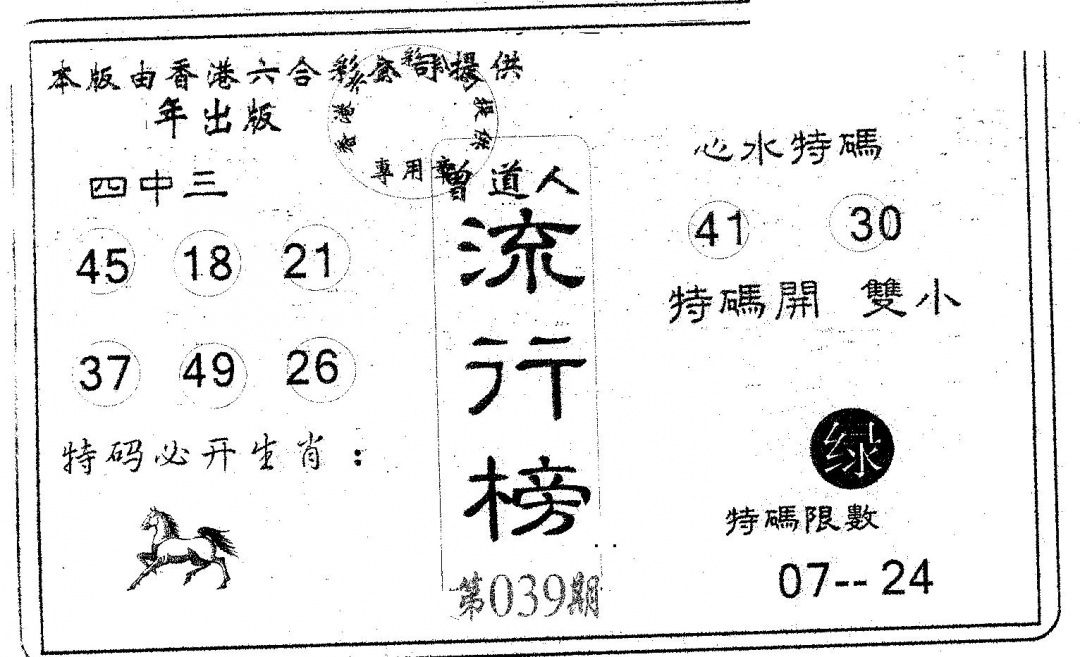 本版由香港六合彩公司提供
年出版
專用章
四中三
45 18 21
37 49 26
特码必开生肖：
曾道人
流行榜
第039期
心水特碼
41 30
特碼開 雙小
绿
特碼限數
07--24